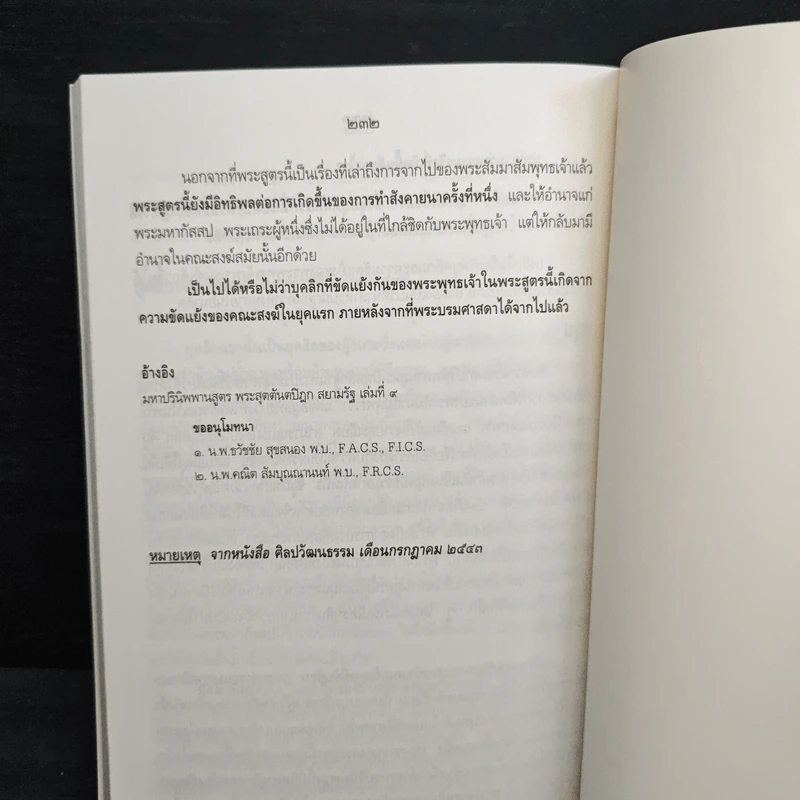 ๒๓๒
นอกจากที่พระสูตรนี้เป็นเรื่องที่เล่าถึงการจากไปของพระสัมมาสัมพุทธเจ้าแล้ว
พระสูตรนี้ยังมีอิทธิพลต่อการเกิดขึ้นของการทำสังคายนาครั้งที่หนึ่ง และให้อำนาจแก่
พระมหากัสสป พระเถระผู้หนึ่งซึ่งไม่ได้อยู่ในที่ใกล้ชิดกับพระพุทธเจ้า แต่ให้กลับมามี
อำนาจในคณะสงฆ์สมัยนั้นอีกด้วย
เป็นไปได้หรือไม่ว่าบุคลิกที่ขัดแย้งกันของพระพุทธเจ้าในพระสูตรนี้เกิดจาก
ความขัดแย้งของคณะสงฆ์ในยุคแรก ภายหลังจากที่พระบรมศาสดาได้จากไปแล้ว
อ้างอิง
มหาปรินิพพานสูตร พระสุตตันตปิฎก สยามรัฐ เล่มที่ ๙
ขออนุโมทนา
๑. น.พ.ธวัชชัย สุขสนอง พ.บ., F.A.C.S., F.I.C.S.
๒. น.พ.คณิต สัมบุณณานนท์ พ.บ., F.R.C.S.
หมายเหตุ จากหนังสือ ศิลปวัฒนธรรม เดือนกรกฎาคม ๒๕๔๓